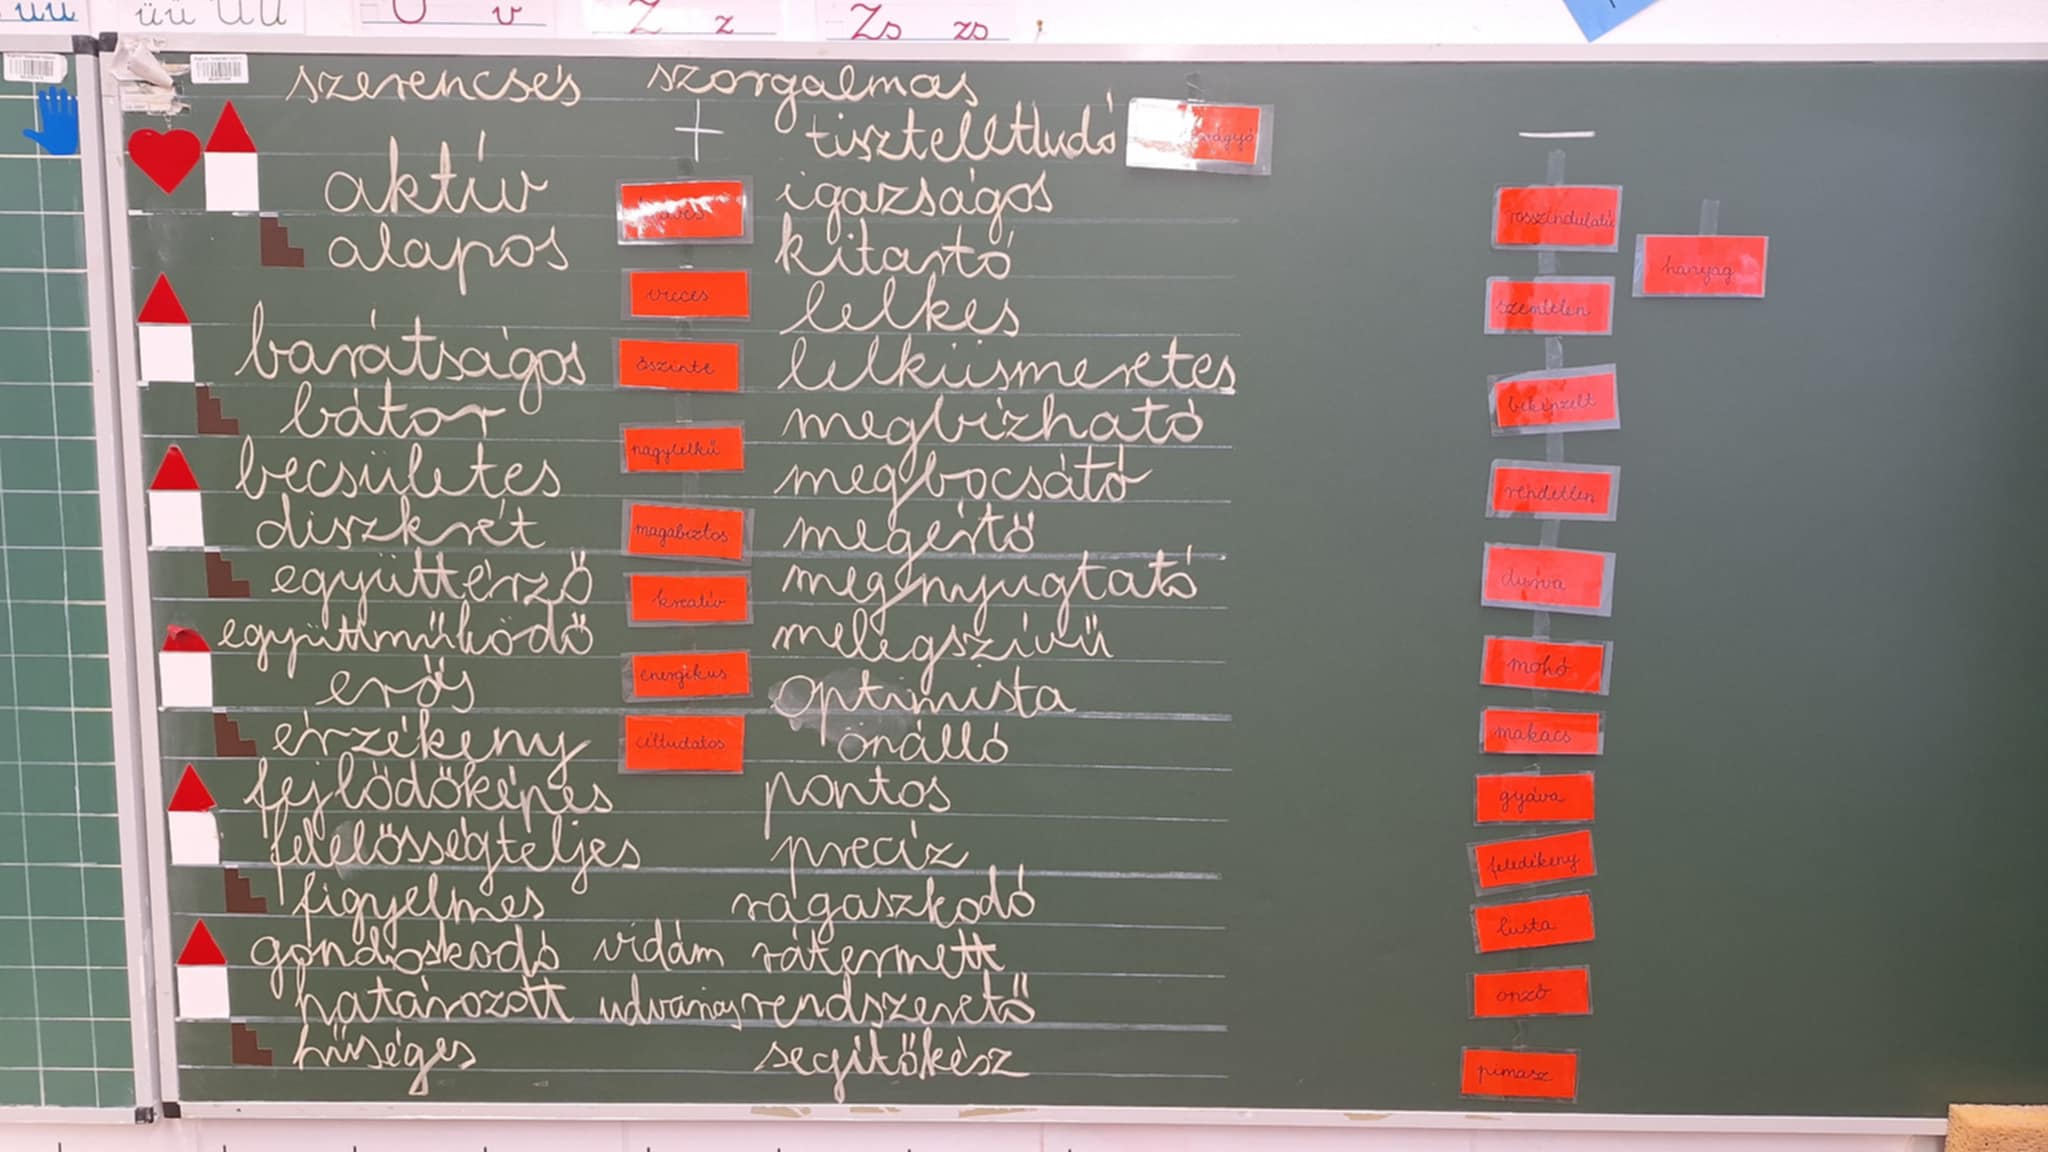 üü üü Ü Ü U v Z z Zs zs
szerencsés szorgalmas
+ tiszteletttudó —
aktív igazságos rosszindulatú
alapos kitartó hanyag
vicces lelkes szemtelen
barátságos őszinte lelkiismeretes beképzelt
bátor nagylelkű megbízható
becsületes megbocsátó rendetlen
diszkrét magabiztos megértő
együttérző kreatív megnyugtató durva
együttműködő melegszívű mohó
erős energikus optimista
érzékeny céltudatos önálló makacs
fejlődőképes pontos gyáva
felelősségteljes precíz feledékeny
figyelmes ragaszkodó lusta
gondoskodó vidám rátermett
határozott udvarias rendszerető önző
hűséges segítőkész pimasz